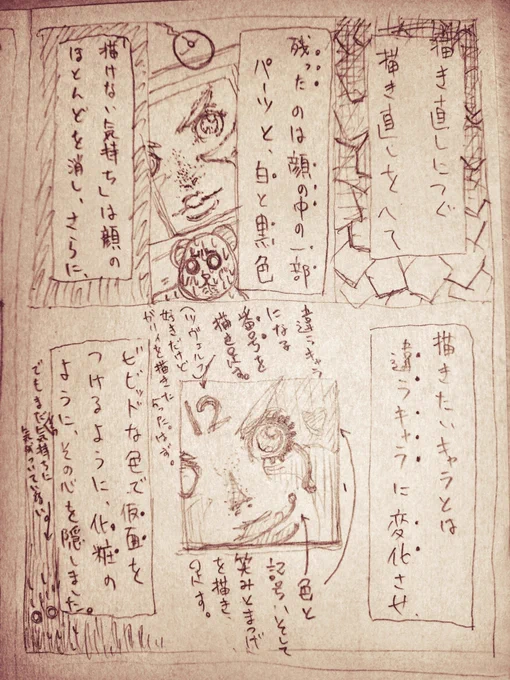 描き直しにつぐ
描き直しをへて
残ったのは顔の中の一部
パーツと、白と黒色
「描けない気持ち」は顔の
ほとんどを消し、さらに、
描きたいキャラとは
違うキャラに変化させ
違うキャラ
になる
番号を
描き足す。
好きだけど
12
色と
記号、そして
笑みとまつげ
を描き
足す。
ビビッドな色で仮面を
つけるように、化粧の
ように、その心を隠しました。
でもまだ気持ちに
気がついていない。